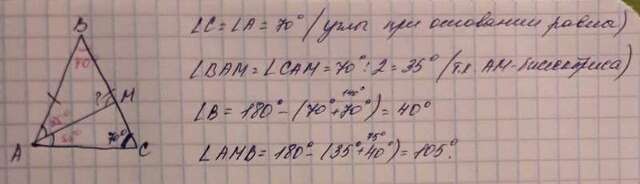 B
∠C = ∠A = 70° (углы при основании равны)
70°
∠BAM = ∠CAM = 70° : 2 = 35° (т.к. AM - биссектриса)
? M
140°
∠B = 180° - (70° + 70°) = 40°
35°
35° 70°
75°
∠AMB = 180° - (35° + 40°) = 105°.
A C